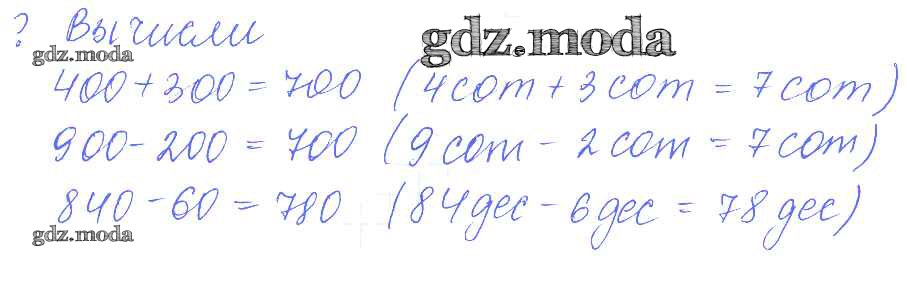 ? Вычисли
gdz.moda
gdz.moda
400 + 300 = 700 (4 сот + 3 сот = 7 сот)
900 - 200 = 700 (9 сот - 2 сот = 7 сот)
840 - 60 = 780 (84 дес - 6 дес = 78 дес)
gdz.moda